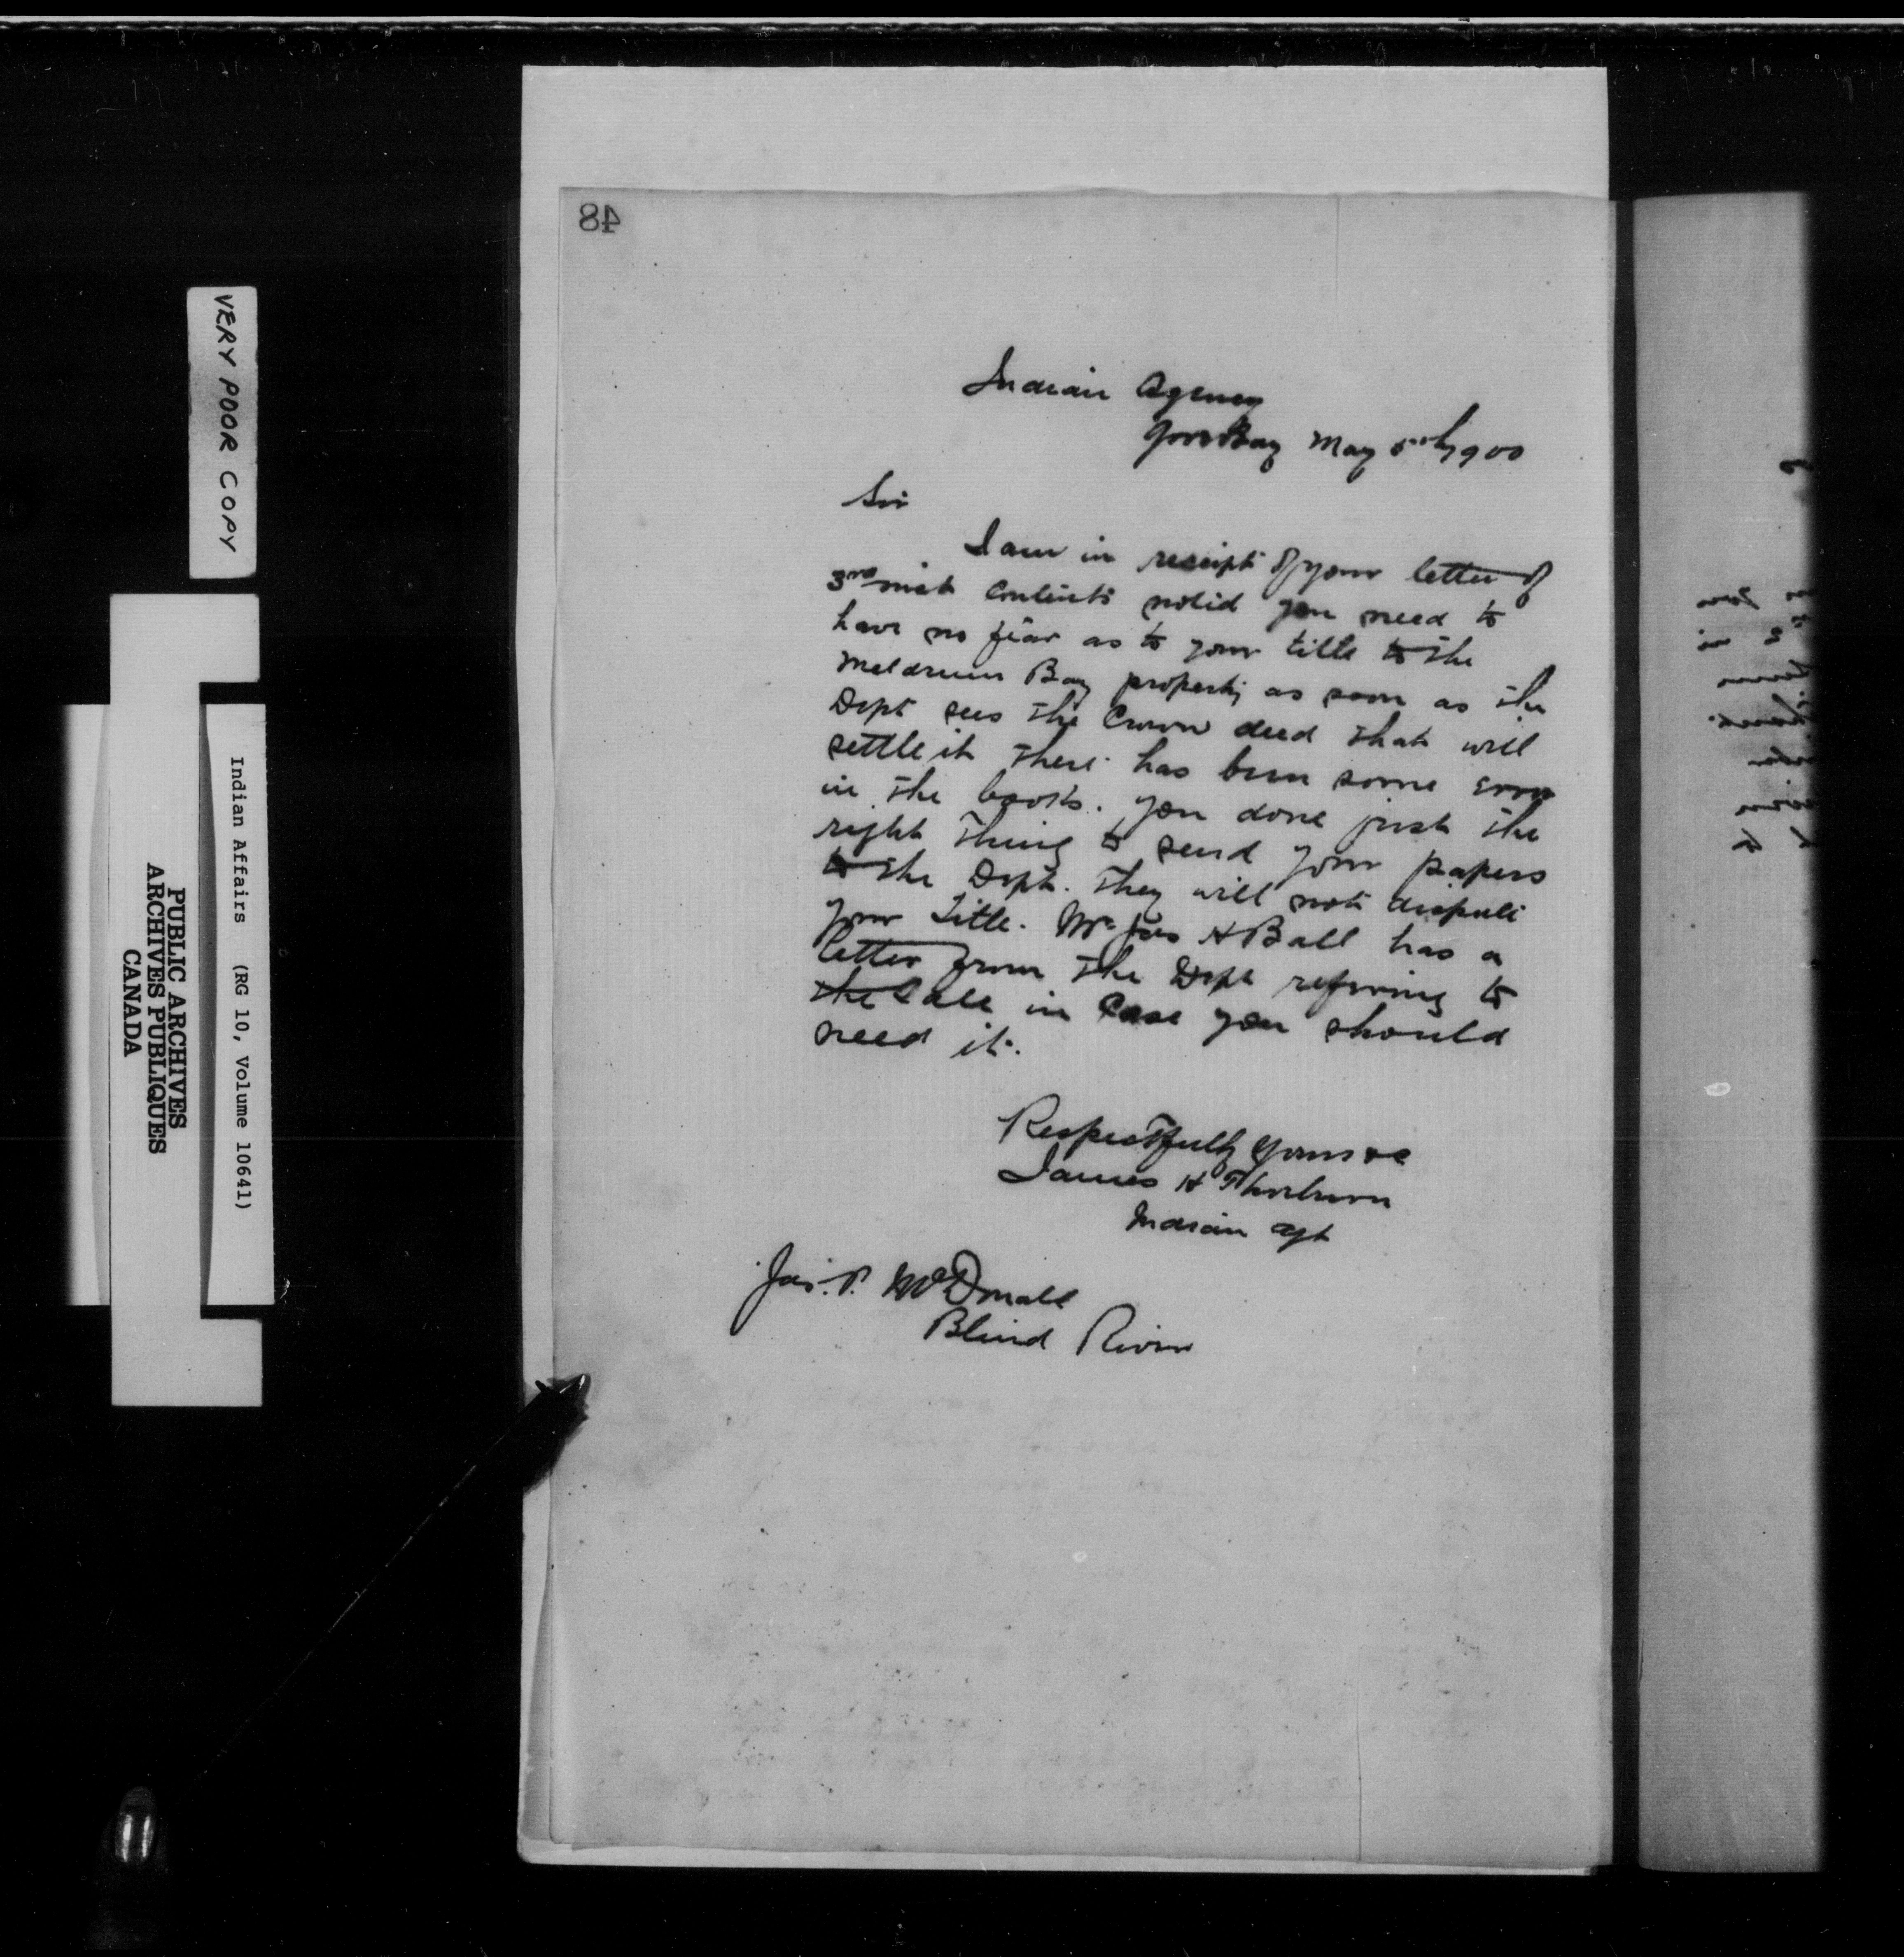 48
Indian Agency
Gore Bay May 5th 1900
Sir
I am in receipt of your letter of
3rd inst Contents notid you need to
have no fear as to your title to the
Meldrum Bay property as soon as the
Dept sees the Crown deed that will
settle it there has been some error
in the books. you done just the
right thing to send your papers
to the Dept. they will not dispute
your Title. Mr Jas H Ball has a
letter from the Dept refering to
the Sale in Case you should
need it.
Respectfully yours &c
James H Thorburn
Indian Agt
Jas. P. McDonald
Blind River
VERY POOR COPY
Indian Affairs (RG 10, Volume 10641)
PUBLIC ARCHIVES
ARCHIVES PUBLIQUES
CANADA